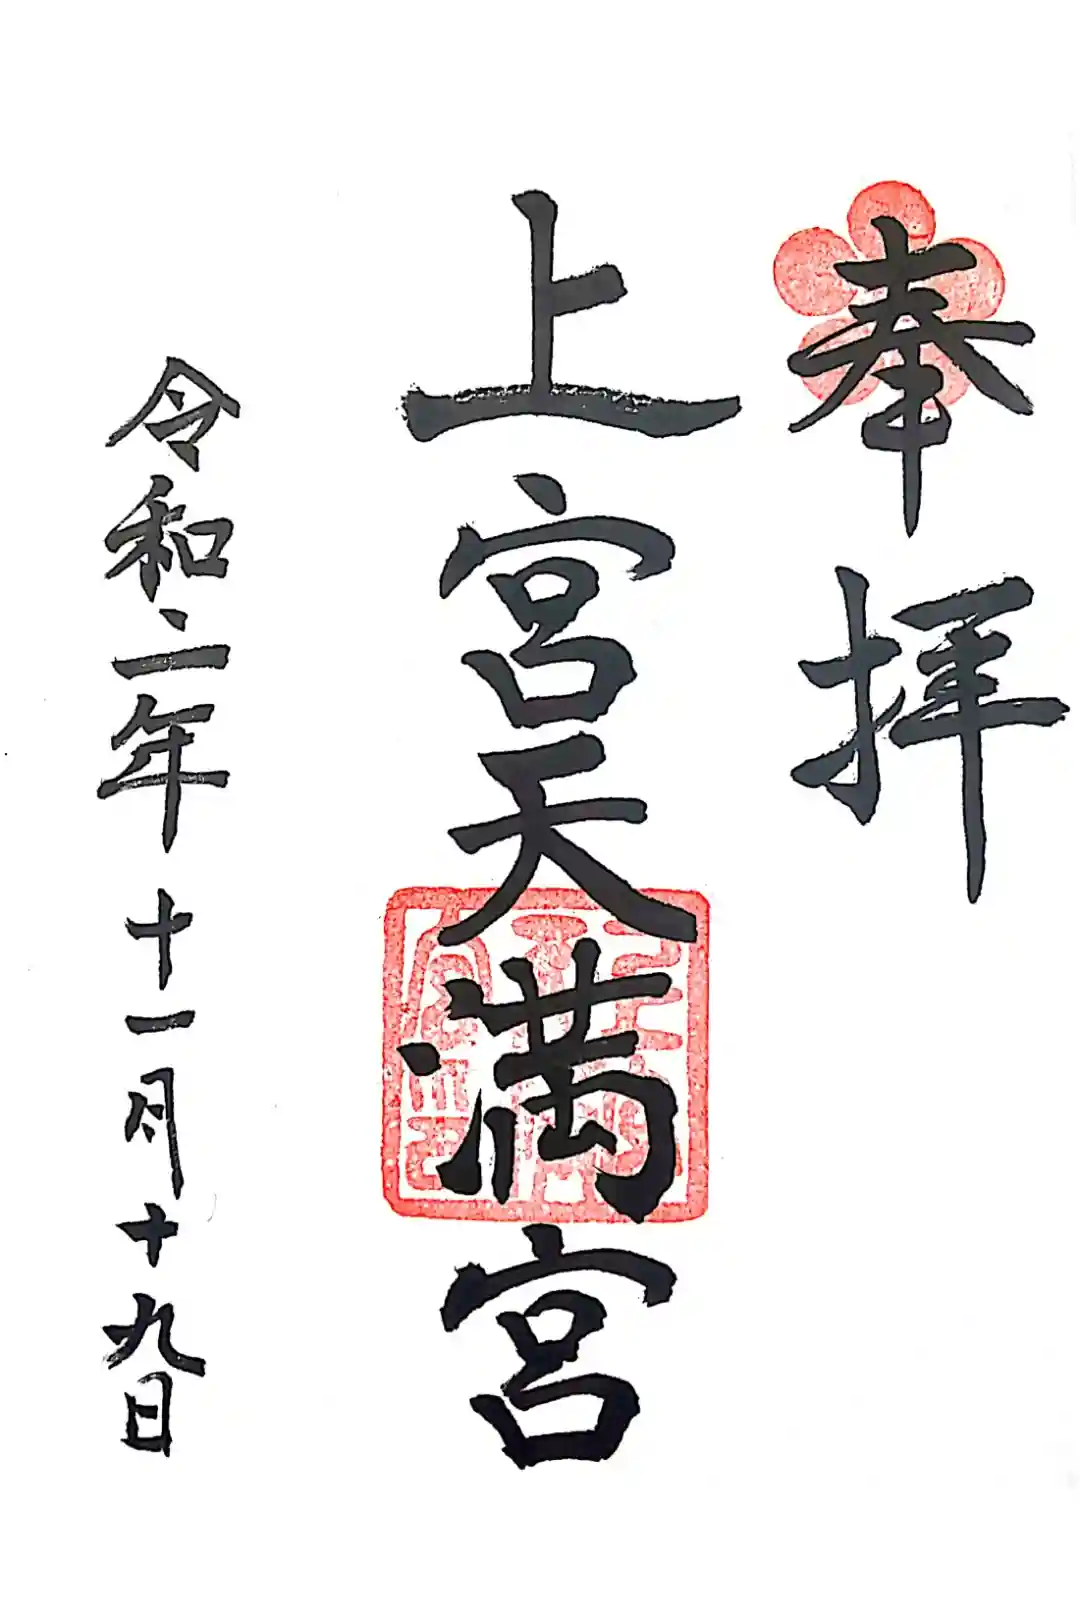 奉拝
上宮天満宮
令和二年十一月十九日